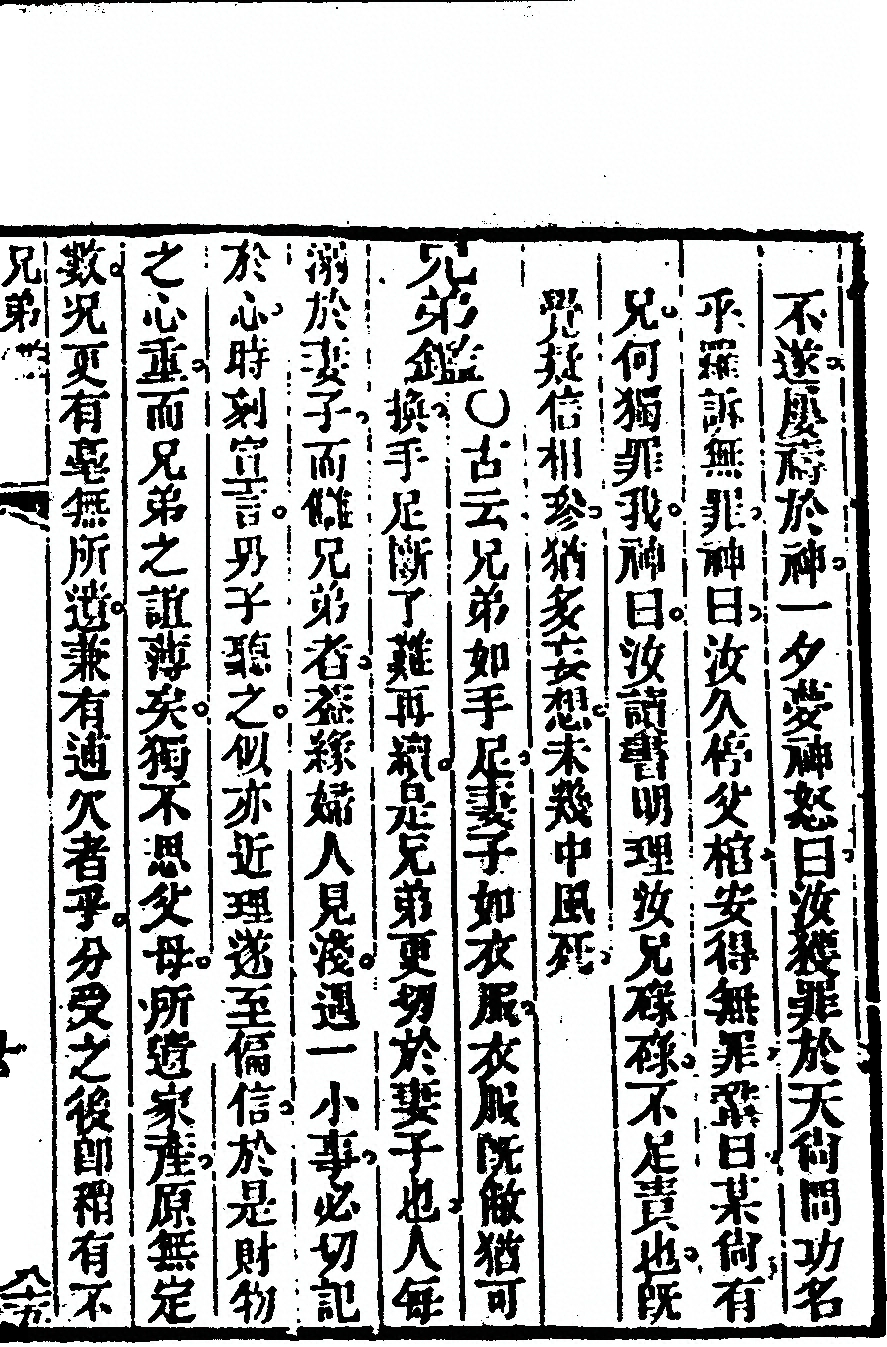 不遂屢禱於神一夕夢神怒曰汝獲罪於天尙問功名
乎羅訴無罪神曰汝久停父棺安得無罪羅曰某尙有
兄何獨罪我神曰汝讀書明理汝兄碌碌不足責也既
覺疑信相參猶多妄想未幾中風死
兄弟鑑
〇古云兄弟如手足妻子如衣服衣服既敝猶可
換手足斷了難再續是兄弟更切於妻子也人每
溺於妻子而讎兄弟者蓋緣婦人見淺遇一小事必切記
於心時刻宣言男子聽之似亦近理遂至偏信於是財物
之心重而兄弟之誼薄矣獨不思父母所遺家產原無定
數況更有毫無所遺兼有逋欠者乎分受之後卽稍有不
兄弟
八十五